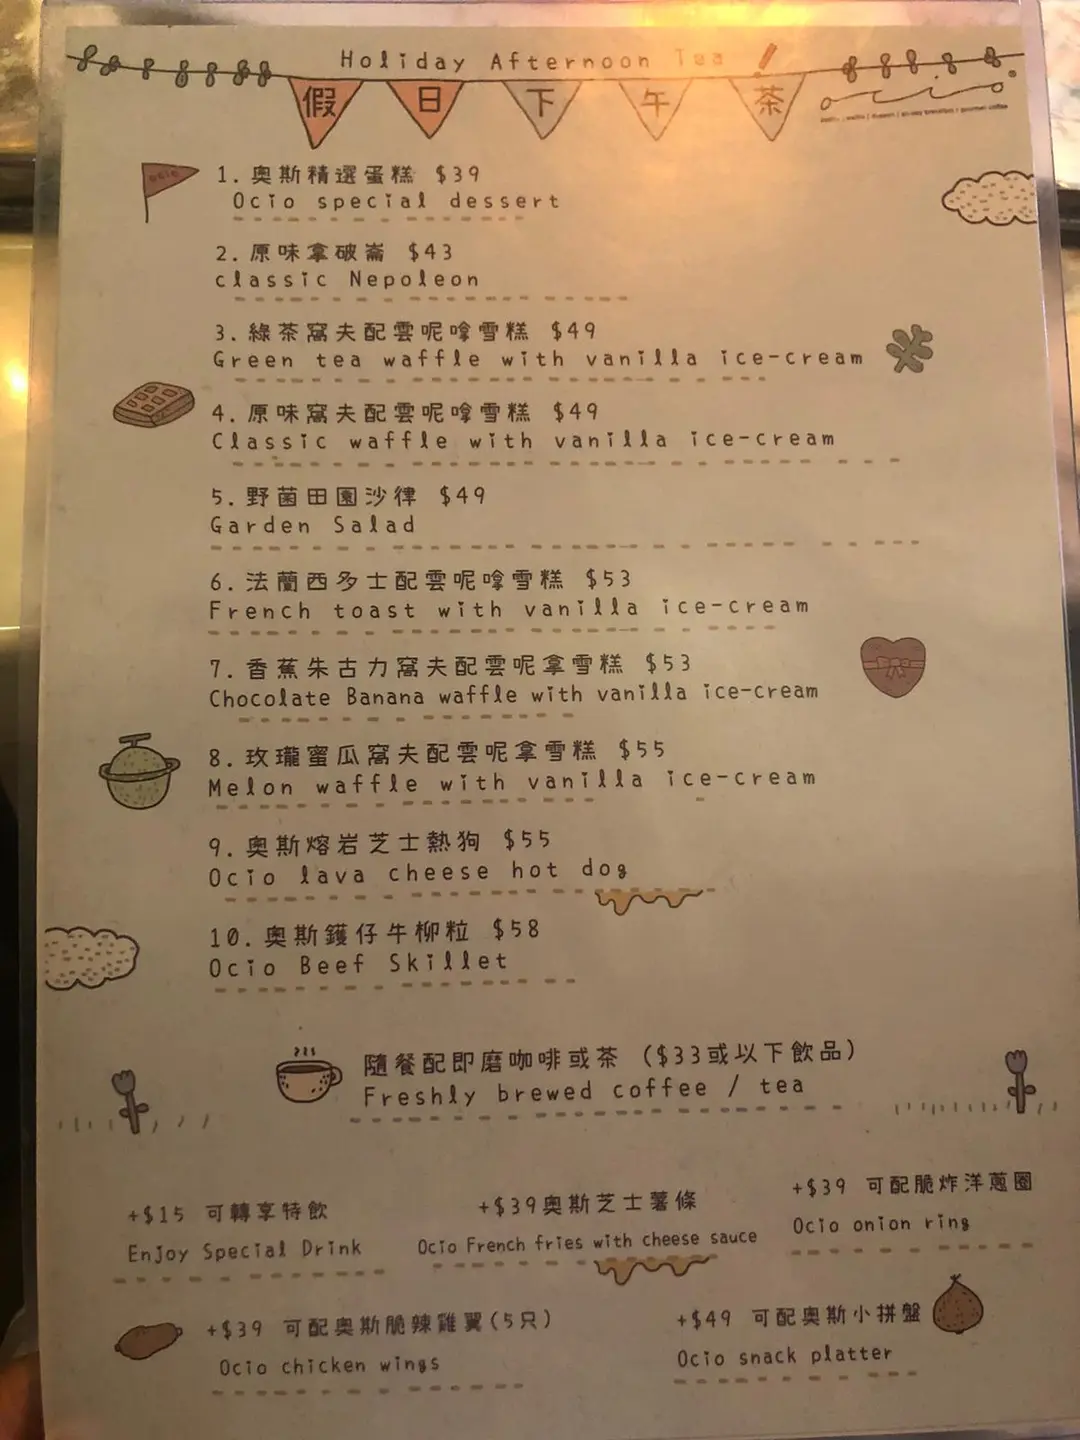 Holiday Afternoon Tea
假日下午茶
ocio
ocio
1. 奧斯精選蛋糕 $39
Ocio special dessert
2. 原味拿破崙 $43
classic Nepoleon
3. 綠茶窩夫配雲呢嗱雪糕 $49
Green tea waffle with vanilla ice-cream
4. 原味窩夫配雲呢嗱雪糕 $49
Classic waffle with vanilla ice-cream
5. 野菌田園沙律 $49
Garden Salad
6. 法蘭西多士配雲呢嗱雪糕 $53
French toast with vanilla ice-cream
7. 香蕉朱古力窩夫配雲呢拿雪糕 $53
Chocolate Banana waffle with vanilla ice-cream
8. 玫瓏蜜瓜窩夫配雲呢拿雪糕 $55
Melon waffle with vanilla ice-cream
9. 奧斯熔岩芝士熱狗 $55
Ocio lava cheese hot dog
10. 奧斯鑊仔牛柳粒 $58
Ocio Beef Skillet
隨餐配即磨咖啡或茶 ($33或以下飲品)
Freshly brewed coffee / tea
+$15 可轉享特飲
Enjoy Special Drink
+$39奧斯芝士薯條
Ocio French fries with cheese sauce
+$39 可配脆炸洋蔥圈
Ocio onion ring
+$39 可配奧斯脆辣雞翼(5只)
Ocio chicken wings
+$49 可配奧斯小拼盤
Ocio snack platter